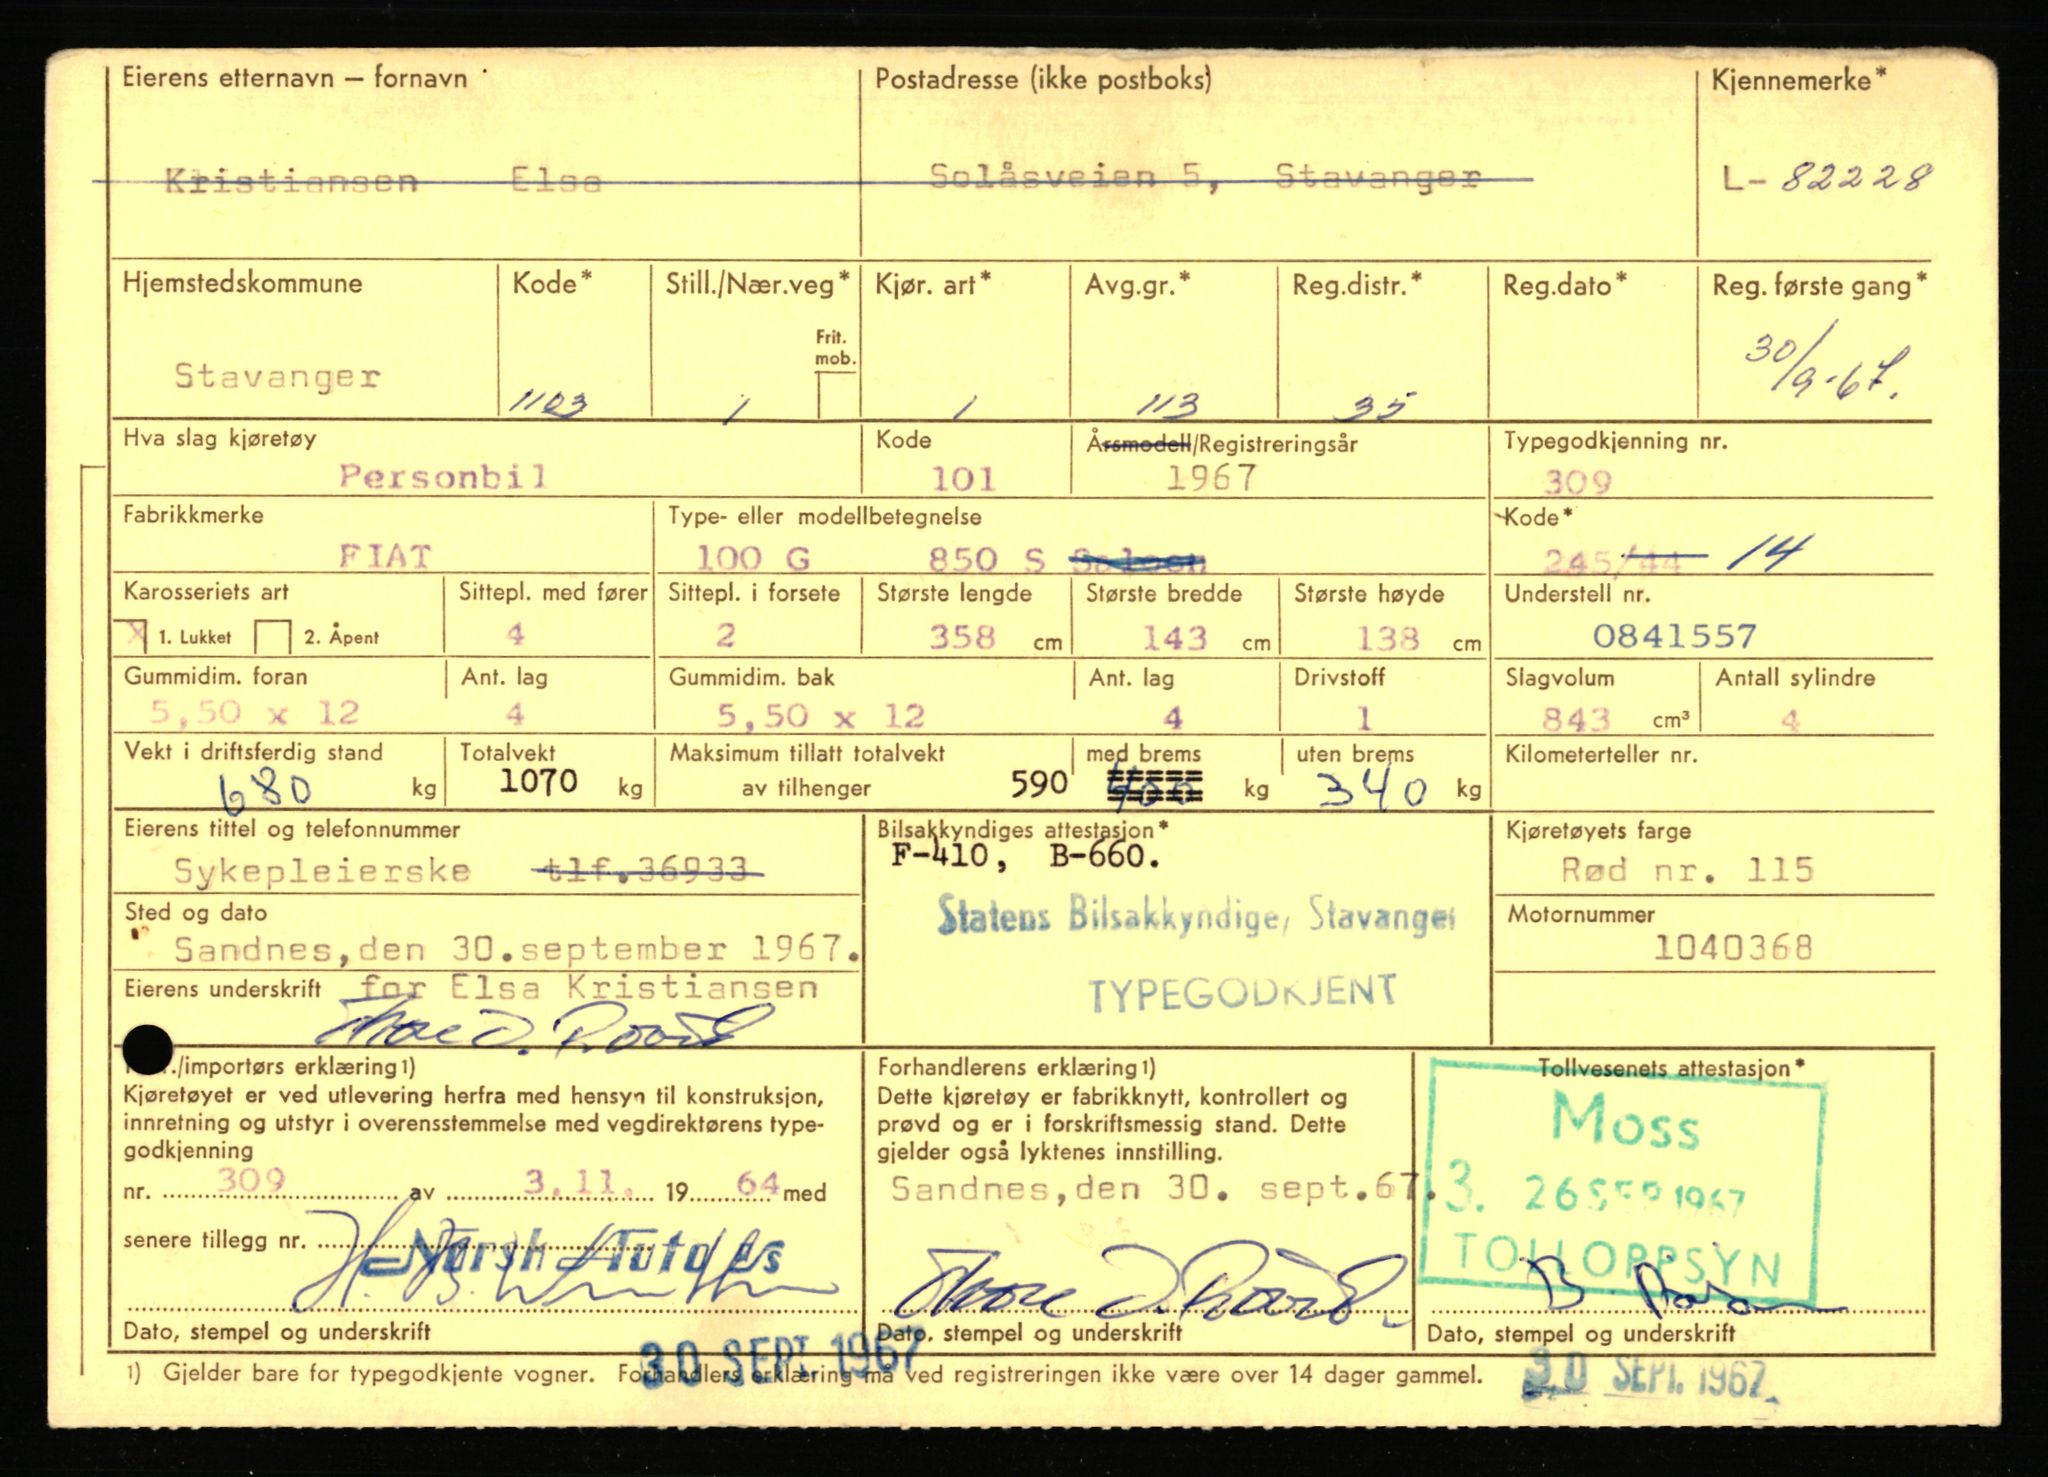 Eierens etternavn – fornavn
Postadresse (ikke postboks)
Kjennemerke*
Kristiansen Elsa
Solåsveien 5, Stavanger
L- 82228
Hjemstedskommune
Kode*
Still./Nær.veg*
Kjør. art*
Avg.gr.*
Reg.distr.*
Reg.dato*
Reg. første gang*
Frit. mob.
Stavanger
1103
1
1
113
35
30/9-67.
Hva slag kjøretøy
Kode
Årsmodell/Registreringsår
Typegodkjenning nr.
Personbil
101
1967
309
Fabrikkmerke
Type- eller modellbetegnelse
Kode*
FIAT
100 G 850 S Saloon
245/44 14
Karosseriets art
Sittepl. med fører
Sittepl. i forsete
Største lengde
Største bredde
Største høyde
Understell nr.
X 1. Lukket 2. Åpent
4
2
358 cm
143 cm
138 cm
0841557
Gummidim. foran
Ant. lag
Gummidim. bak
Ant. lag
Drivstoff
Slagvolum
Antall sylindre
5,50 x 12
4
5,50 x 12
4
1
843 cm³
4
Vekt i driftsferdig stand
Totalvekt
Maksimum tillatt totalvekt
med brems
uten brems
Kilometerteller nr.
680 kg
1070 kg
av tilhenger
590 400 kg
340 kg
Eierens tittel og telefonnummer
Bilsakkyndiges attestasjon*
Kjøretøyets farge
Sykepleierske tlf.36933
F-410, B-660.
Rød nr. 115
Sted og dato
Statens Bilsakkyndige, Stavanger
Motornummer
Sandnes,den 30.september 1967.
1040368
Eierens underskrift for Elsa Kristiansen
TYPEGODKJENT
./importørs erklæring1)
Kjøretøyet er ved utlevering herfra med hensyn til konstruksjon,
innretning og utstyr i overensstemmelse med vegdirektørens type-
godkjenning
nr. 309 av 3.11. 19 64 med
senere tillegg nr.
Norsk Autoles
Dato, stempel og underskrift
Forhandlerens erklæring1)
Dette kjøretøy er fabrikknytt, kontrollert og
prøvd og er i forskriftsmessig stand. Dette
gjelder også lyktenes innstilling.
Sandnes,den 30. sept.67.
Dato, stempel og underskrift
Tollvesenets attestasjon*
Moss
3. 26 SEP 1967
TOLLOPPSYN
Dato, stempel og underskrift
30 SEPT. 1967
1) Gjelder bare for typegodkjente vogner. Forhandlers erklæring må ved registreringen ikke være over 14 dager gammel.
30 SEPT. 1967